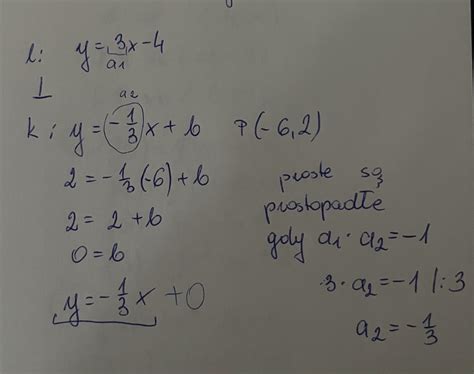 l: y=3x-4
a1
⊥
a2
k: y=(-1/3)x+b P(-6,2)
2=-1/3(-6)+b
2=2+b
0=b
y=-1/3x+0
proste są
prostopadłe
gdy a1·a2=-1
3·a2=-1 |:3
a2=-1/3